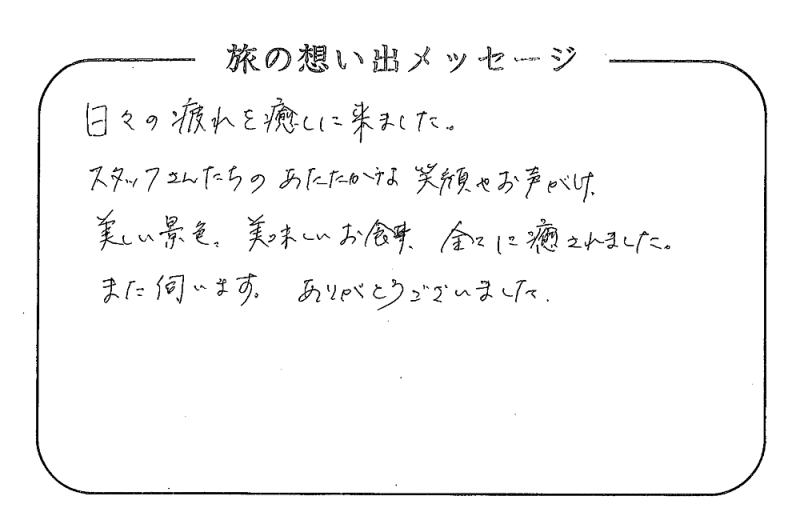 旅の想い出メッセージ
日々の疲れを癒しに来ました。
スタッフさんたちの あたたかな 笑顔やお声がけ、
美しい景色、美味しいお食事、全てに癒されました。
また伺います。 ありがとうございました。